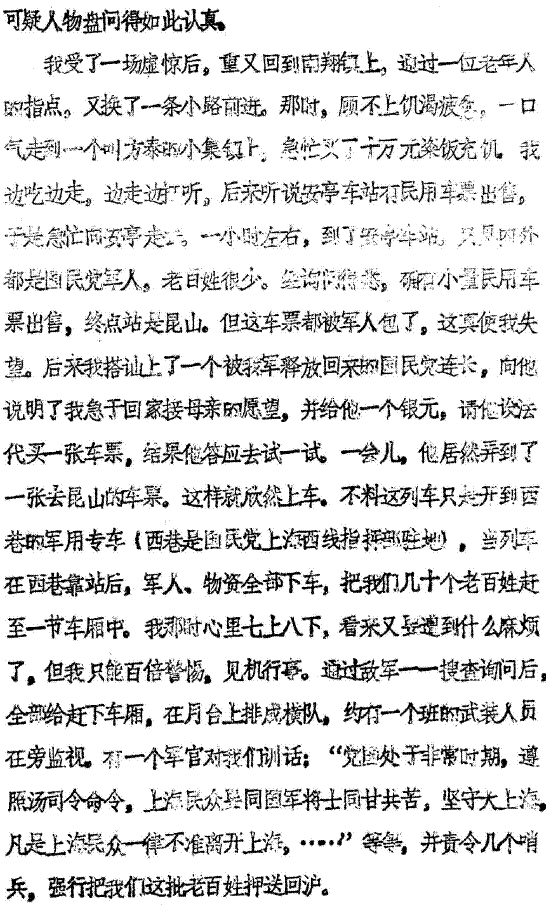 可疑人物盘问得如此认真。
我受了一场虚惊后，重又回到南翔镇上，通过一位老年人
的指点，又换了一条小路前进。那时，顾不上饥渴疲惫，一口
气走到一个叫方泰的小集镇上，急忙买了十万元柴饭充饥。我
边吃边走，边走边打听，后来听说安亭车站有民用车票出售，
于是急忙向安亭走去。一小时左右，到了安亭车站。只见内外
都是国民党军人，老百姓很少。经询问得悉，确有小量民用车
票出售，终点站是昆山。但这车票都被军人包了，这真使我失
望。后来我搭讪上了一个被我军释放回来的国民党连长，向他
说明了我急于回家接母亲的愿望，并给他一个银元，请他设法
代买一张车票，结果他答应去试一试。一会儿，他居然弄到了
一张去昆山的车票。这样就欣然上车。不料这列车只是开到西
巷的军用专车（西巷是国民党上海西线指挥部驻地），当列车
在西巷靠站后，军人、物资全部下车，把我们几十个老百姓赶
至一节车厢中。我那时心里七上八下，看来又要遭到什么麻烦
了，但我只能百倍警惕，见机行事。通过敌军一一搜查询问后，
全部给赶下车厢，在月台上排成横队，约有一个班的武装人员
在旁监视。有一个军官对我们训话；“党国处于非常时期，遵
照汤司令命令，上海民众要同国军将士同甘共苦，坚守大上海，
凡是上海民众一律不准离开上海，·····”等等，并责令几个哨
兵，强行把我们这批老百姓押送回沪。